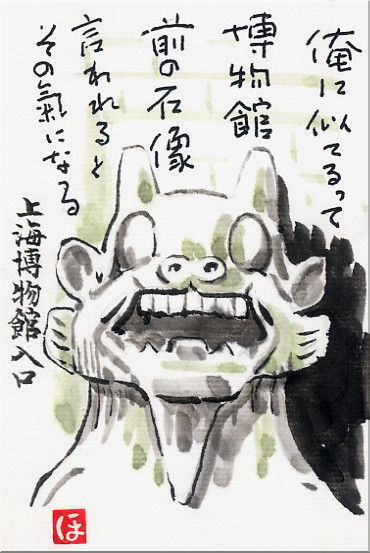 俺に似てるって
博物館
前の石像
言われると
その氣になる
上海博物館入口
ほ